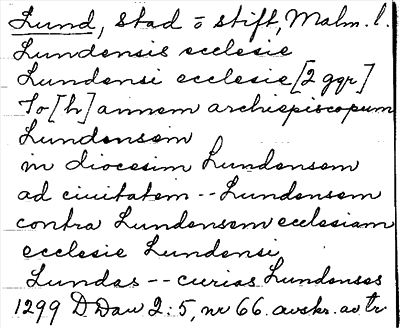 Lund, stad o stift, Malm. l.
Lundensis ecclesie
Lundensi ecclesie [2 ggr]
Jo[h]annem archiepiscopum
Lundensem
in diocesim Lundensem
ad ciuitatem -- Lundensem
contra Lundensem ecclesiam
ecclesie Lundensi
Lundas -- curias Lundenses
1299 DDan 2:5, nr 66. avskr. av tr